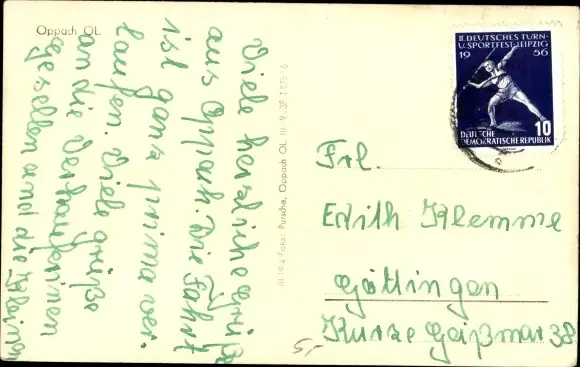 Oppach OL.
Viele herzliche Grüße
aus Oppach. Die Fahrt
ist ganz prima ver-
laufen. Viele Grüße
an die Verkäuferinnen
Gesellen und die kleinen
III 19 4 Foto: Pursche, Oppach OL
II. DEUTSCHES TURN-
U. SPORTFEST LEIPZIG
1956
DEUTSCHE
DEMOKRATISCHE REPUBLIK
10
Frl.
Edith Klemme
Göttingen
Kurze Geißmar 38
5,-